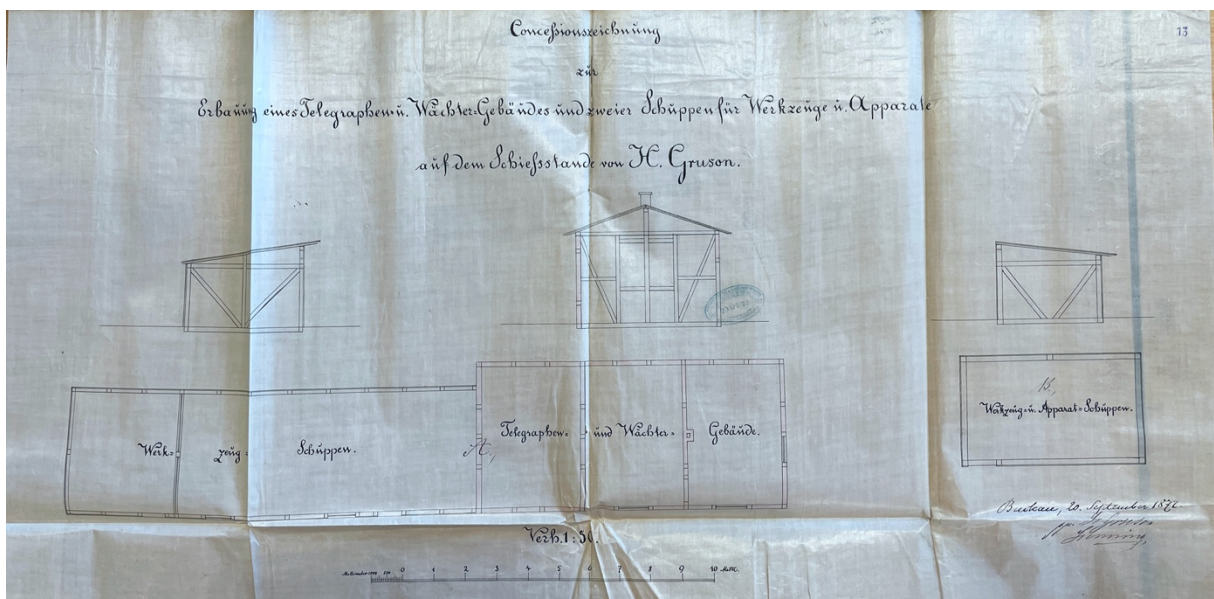 Concessionszeichnung
13
zur
Erbauung eines Telegraphen u. Wächter-Gebäudes und zweier Schuppen für Werkzeuge u. Apparate
auf dem Schiessstande von H. Gruson.
Werk= zeug= Schuppen.
A,
Telegraphen= und Wächter= Gebäude.
B,
Werkzeug= u. Apparat=Schuppen.
Verh. 1:50.
Buckau, 20. September 187
0 1 2 3 4 5 6 7 8 9 10 Met.